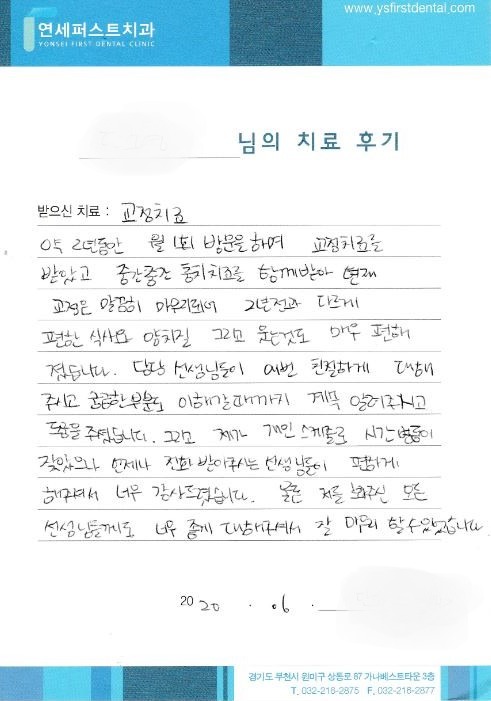 www.ysfirstdental.com
연세퍼스트치과
YONSEI FIRST DENTAL CLINIC
님의 치료 후기
받으신 치료 : 교정치료
약 2년동안 월 1회 방문을 하며 교정치료를
받았고 중간중간 충치치료를 함께받아 현재
교정은 말끔히 마무리되어 2년전과 다르게
편한 식사와 양치질 그리고 웃는것도 매우 편해
졌습니다. 담당 선생님들이 매번 친절하게 대해
주시고 궁금한부분도 이해갈때까지 계속 알려주시고
도움을 주셨습니다. 그리고 제가 개인 스케줄로 시간변동이
잦았으나 언제나 전화 받아주시는 선생님들이 편하게
해주셔서 너무 감사드렸습니다. 물론 저를 봐주신 모든
선생님들께서도 너무 좋게 대해주셔서 잘 마무리 할 수 있었습니다
2020 . 06 .
경기도 부천시 원미구 상동로 87 가나베스트타운 3층
T. 032-218-2875 F. 032-218-2877